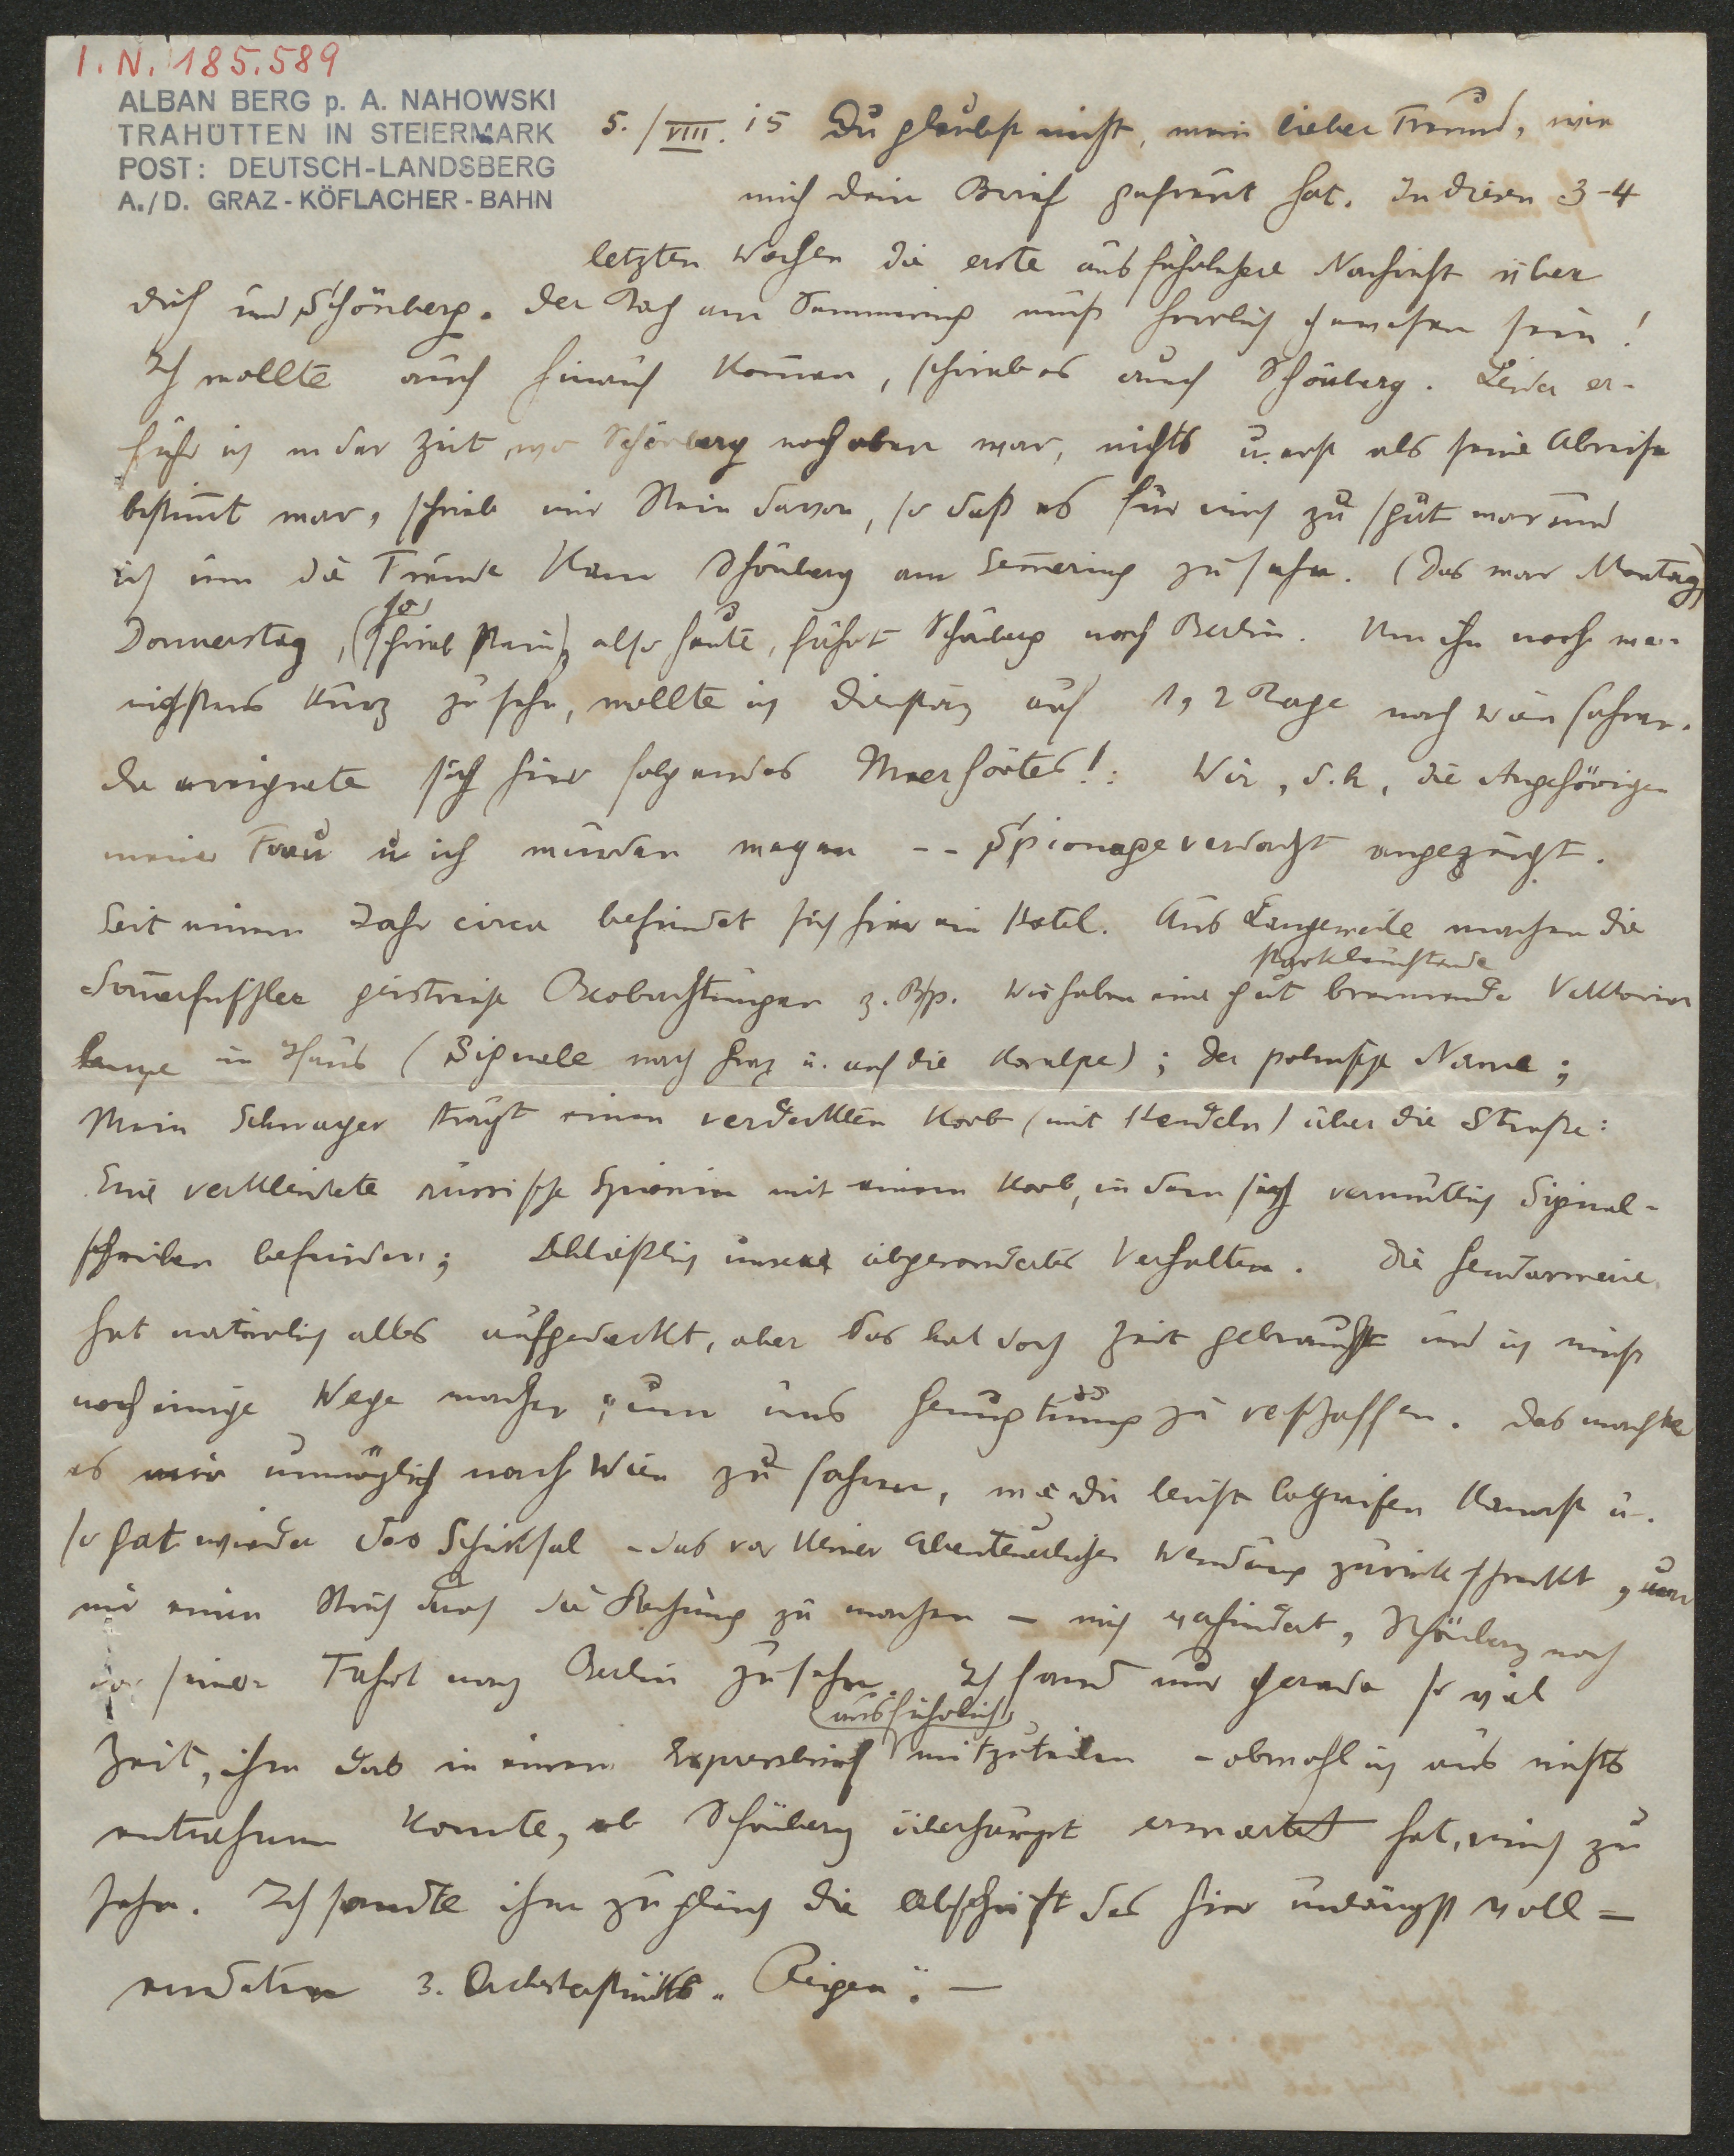 I.N. 185.589
ALBAN BERG p. A. NAHOWSKI
TRAHÜTTEN IN STEIERMARK
POST: DEUTSCH-LANDSBERG
A./D. GRAZ-KÖFLACHER-BAHN
5./VIII. 15 Du glaubst nicht, mein lieber Freund, wie
mich dein Brief gefreut hat. In diesen 3-4
letzten Wochen die erste ausführlichere Nachricht über
dich und Schönberg. Der Tag am Semmering muß herrlich gewesen sein!
Ich wollte auch hinauf kom̄en, schrieb es auch Schönberg. Leider er-
fuhr ich in der Zeit, wo Schönberg noch oben war, nichts u. erst als seine Abreise
bestim̄t war, schrieb mir Stein davon, so daß es für mich zu spät war und
ich um die Freude kam Schönberg am Sem̄ering zu sehn. (Das war Montag)
Donnerstag, (so schrieb Stein), also heute, fährt Schönberg nach Berlin. Um ihn noch we-
nigstens kurz zu sehn, wollte ich Dienstag auf 1, 2 Tage nach Wien fahren.
Da ereignete sich hier folgendes Unerhörtes!: Wir, d.h. die Angehörigen
meiner Frau u ich wurden wegen -- Spionageverdacht angezeigt.
Seit einem Jahr circa befindet sich hier ein Hotel. Aus Langeweile machen die
Som̄erfrischler geistreiche Beobachtungen z. Bsp. Wir haben eine gut brennende starkleuchtende Viktoria
lampe im Haus (Signale nach Graz u. auf die Koralpe); der polnische Name;
Mein Schwager trägt einen verdeckten Korb (mit Hendeln) über die Straße:
Eine verkleidete russische Spionin mit einem Korb, in dem sich vermutlich Signal-
scheiben befinden; Schließlich unser abgesondertes Verhalten. Die Gendarmerie
hat natürlich alles aufgedeckt, aber das hat doch Zeit gebraucht und ich muß
noch einige Wege machen, um uns Genugtuung zu verschaffen. Das machte
es mir unmöglich nach Wien zu fahren, wie du leicht begreifen kannst u.
so hat wieder das Schicksal – das vor keiner abenteuerlichen Wendung zurückschreckt, um
mir einen Strich durch die Rechnung zu machen – mich verhindert, Schönberg noch
vor seiner Fahrt nach Berlin zu sehn. Ich fand nur gerade so viel
Zeit, ihm das in einem Expressbrief ausführlich mitzuteilen – obwohl ich aus nichts
entnehmen konnte, ob Schönberg überhaupt erwartet hat, mich zu
sehn. Ich sandte ihm zugleich die Abschrift des hier unlängst voll=
endeten 3. Orchesterstücks „Reigen“. —